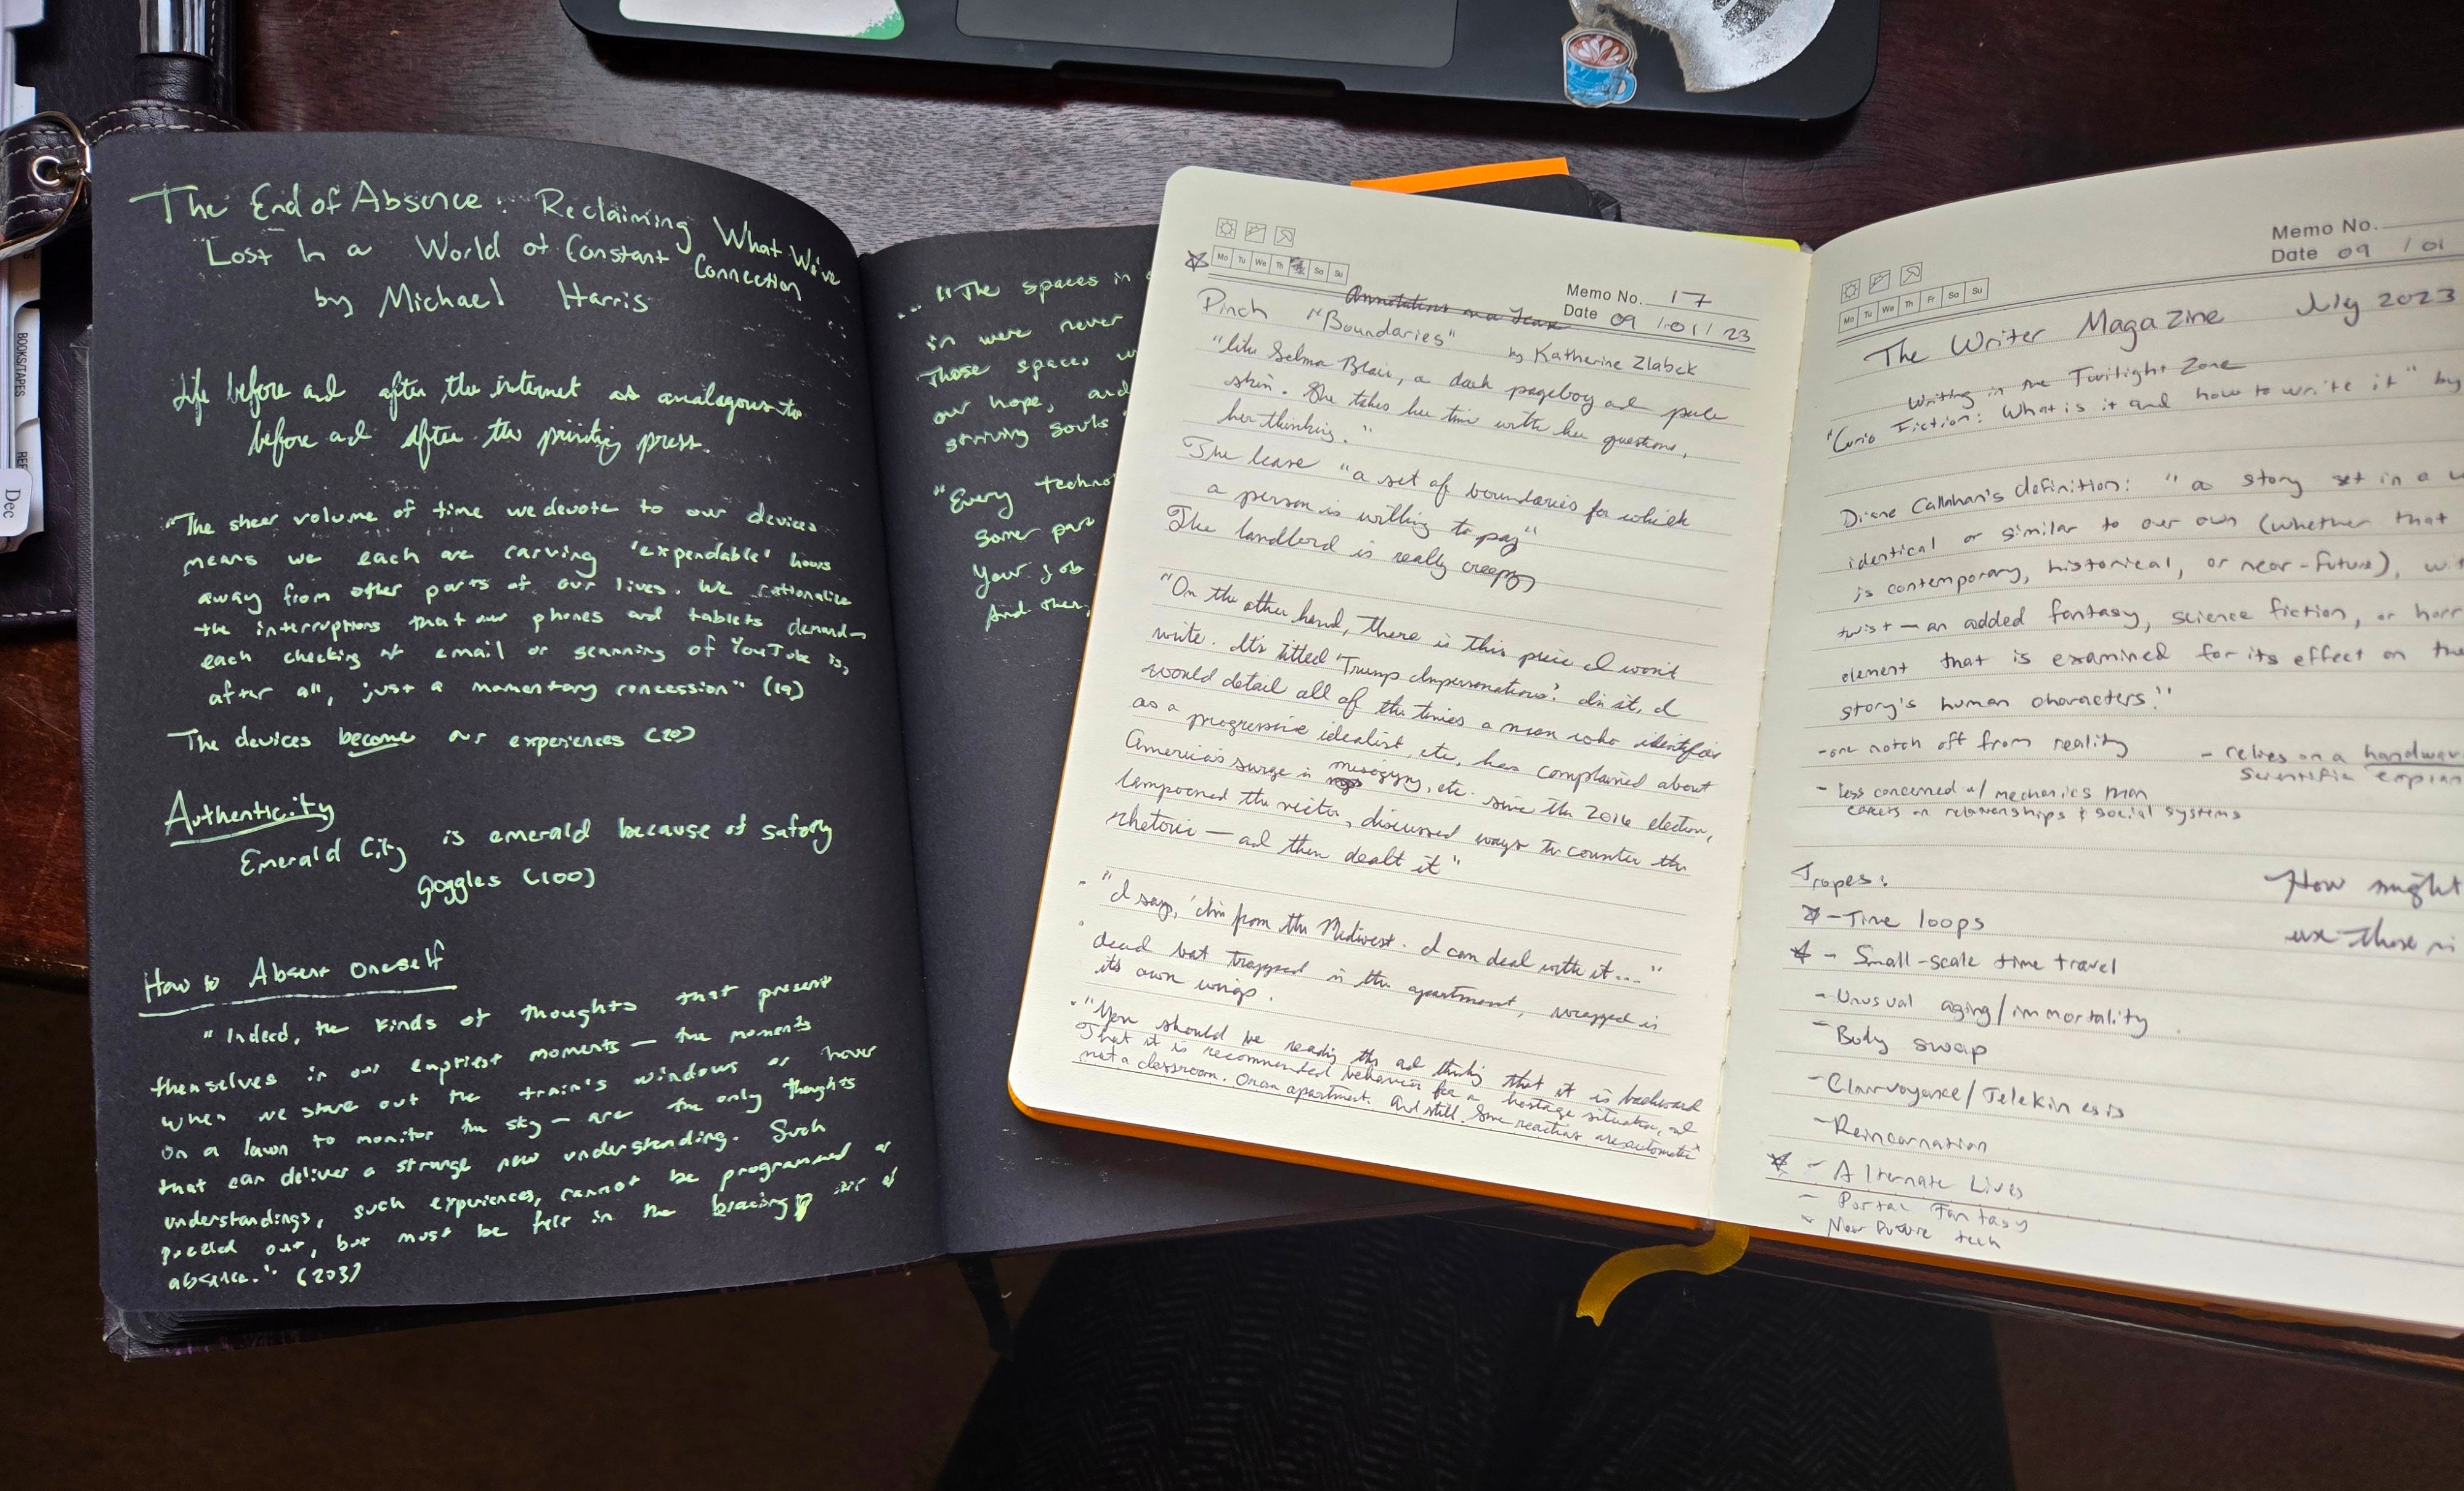 The End of Absence: Reclaiming What We've
Lost In a World of Constant Connection
by Michael Harris
Life before and after the internet as analagous to
before and after the printing press.
"The sheer volume of time we devote to our devices
means we each are carving 'expendable' hours
away from other parts of our lives. We rationalize
the interruptions that our phones and tablets demand—
each checking of email or scanning of YouTube is,
after all, just a momentary concession" (19)
The devices become our experiences (20)
Authenticity
Emerald City is emerald because of safety
goggles (100)
How to Absent Oneself
"Indeed, the kinds of thoughts that present
themselves in our emptiest moments — the moments
when we stare out the train's windows or hover
on a lawn to monitor the sky — are the only thoughts
that can deliver a strange new understanding. Such
understandings, such experiences, cannot be programmed or
out, but must be felt in the bracing air of
absence." (203)
... "The spaces in
in were never
Those spaces
our hope, and
striving souls
"Every techno
some part
Your job
And then,
BOOKS/TAPES
REF
Dec
Mo Tu We Th Sa Su
Memo No. 17
Date 09 / 01 / 23
Pinch "Boundaries" by Katherine Zlabek
"like Selma Blair, a dark pageboy and pale
skin. She takes her time with her questions,
her thinking."
The lease "a set of boundaries for which
a person is willing to pay"
The landlord is really creepy
"On the other hand, there is this piece I won't
write. It's titled 'Trump Impersonations'. In it, I
would detail all of the times a man who identifies
as a progressive idealist, etc, has complained about
America's surge in misogyny, etc. since the 2016 election,
lampooned the victor, discussed ways to counter the
rhetoric — and then dealt it"
- "I say, 'I'm from the Midwest. I can deal with it..."
dead bat trapped in the apartment, wrapped in
its own wings.
"You should be reading this and thinking that it is backward
That it is recommended behavior for a hostage situation, and
not a classroom. Or an apartment. And still. Some reactions are automatic"
Memo No.
Date 09 / 01
Mo Tu We Th Fr Sa Su
The Writer Magazine July 2023
Writing in the Twilight Zone
"Curio Fiction: What is it and how to write it" by
Diane Callahan's definition: "a story set in a w
identical or similar to our own (whether that
is contemporary, historical, or near-future), wit
twist — an added fantasy, science fiction, or horr
element that is examined for its effect on the
story's human characters."
- one notch off from reality
- relies on a handwav
scientific explan
- less concerned w/ mechanics than
on relationships & social systems
Tropes:
- Time loops
- Small-scale time travel
- Unusual aging/immortality
- Body swap
- Clairvoyance/Telekinesis
- Reincarnation
- Alternate Lives
- Portal Fantasy
- Near Future tech
How might
use these in